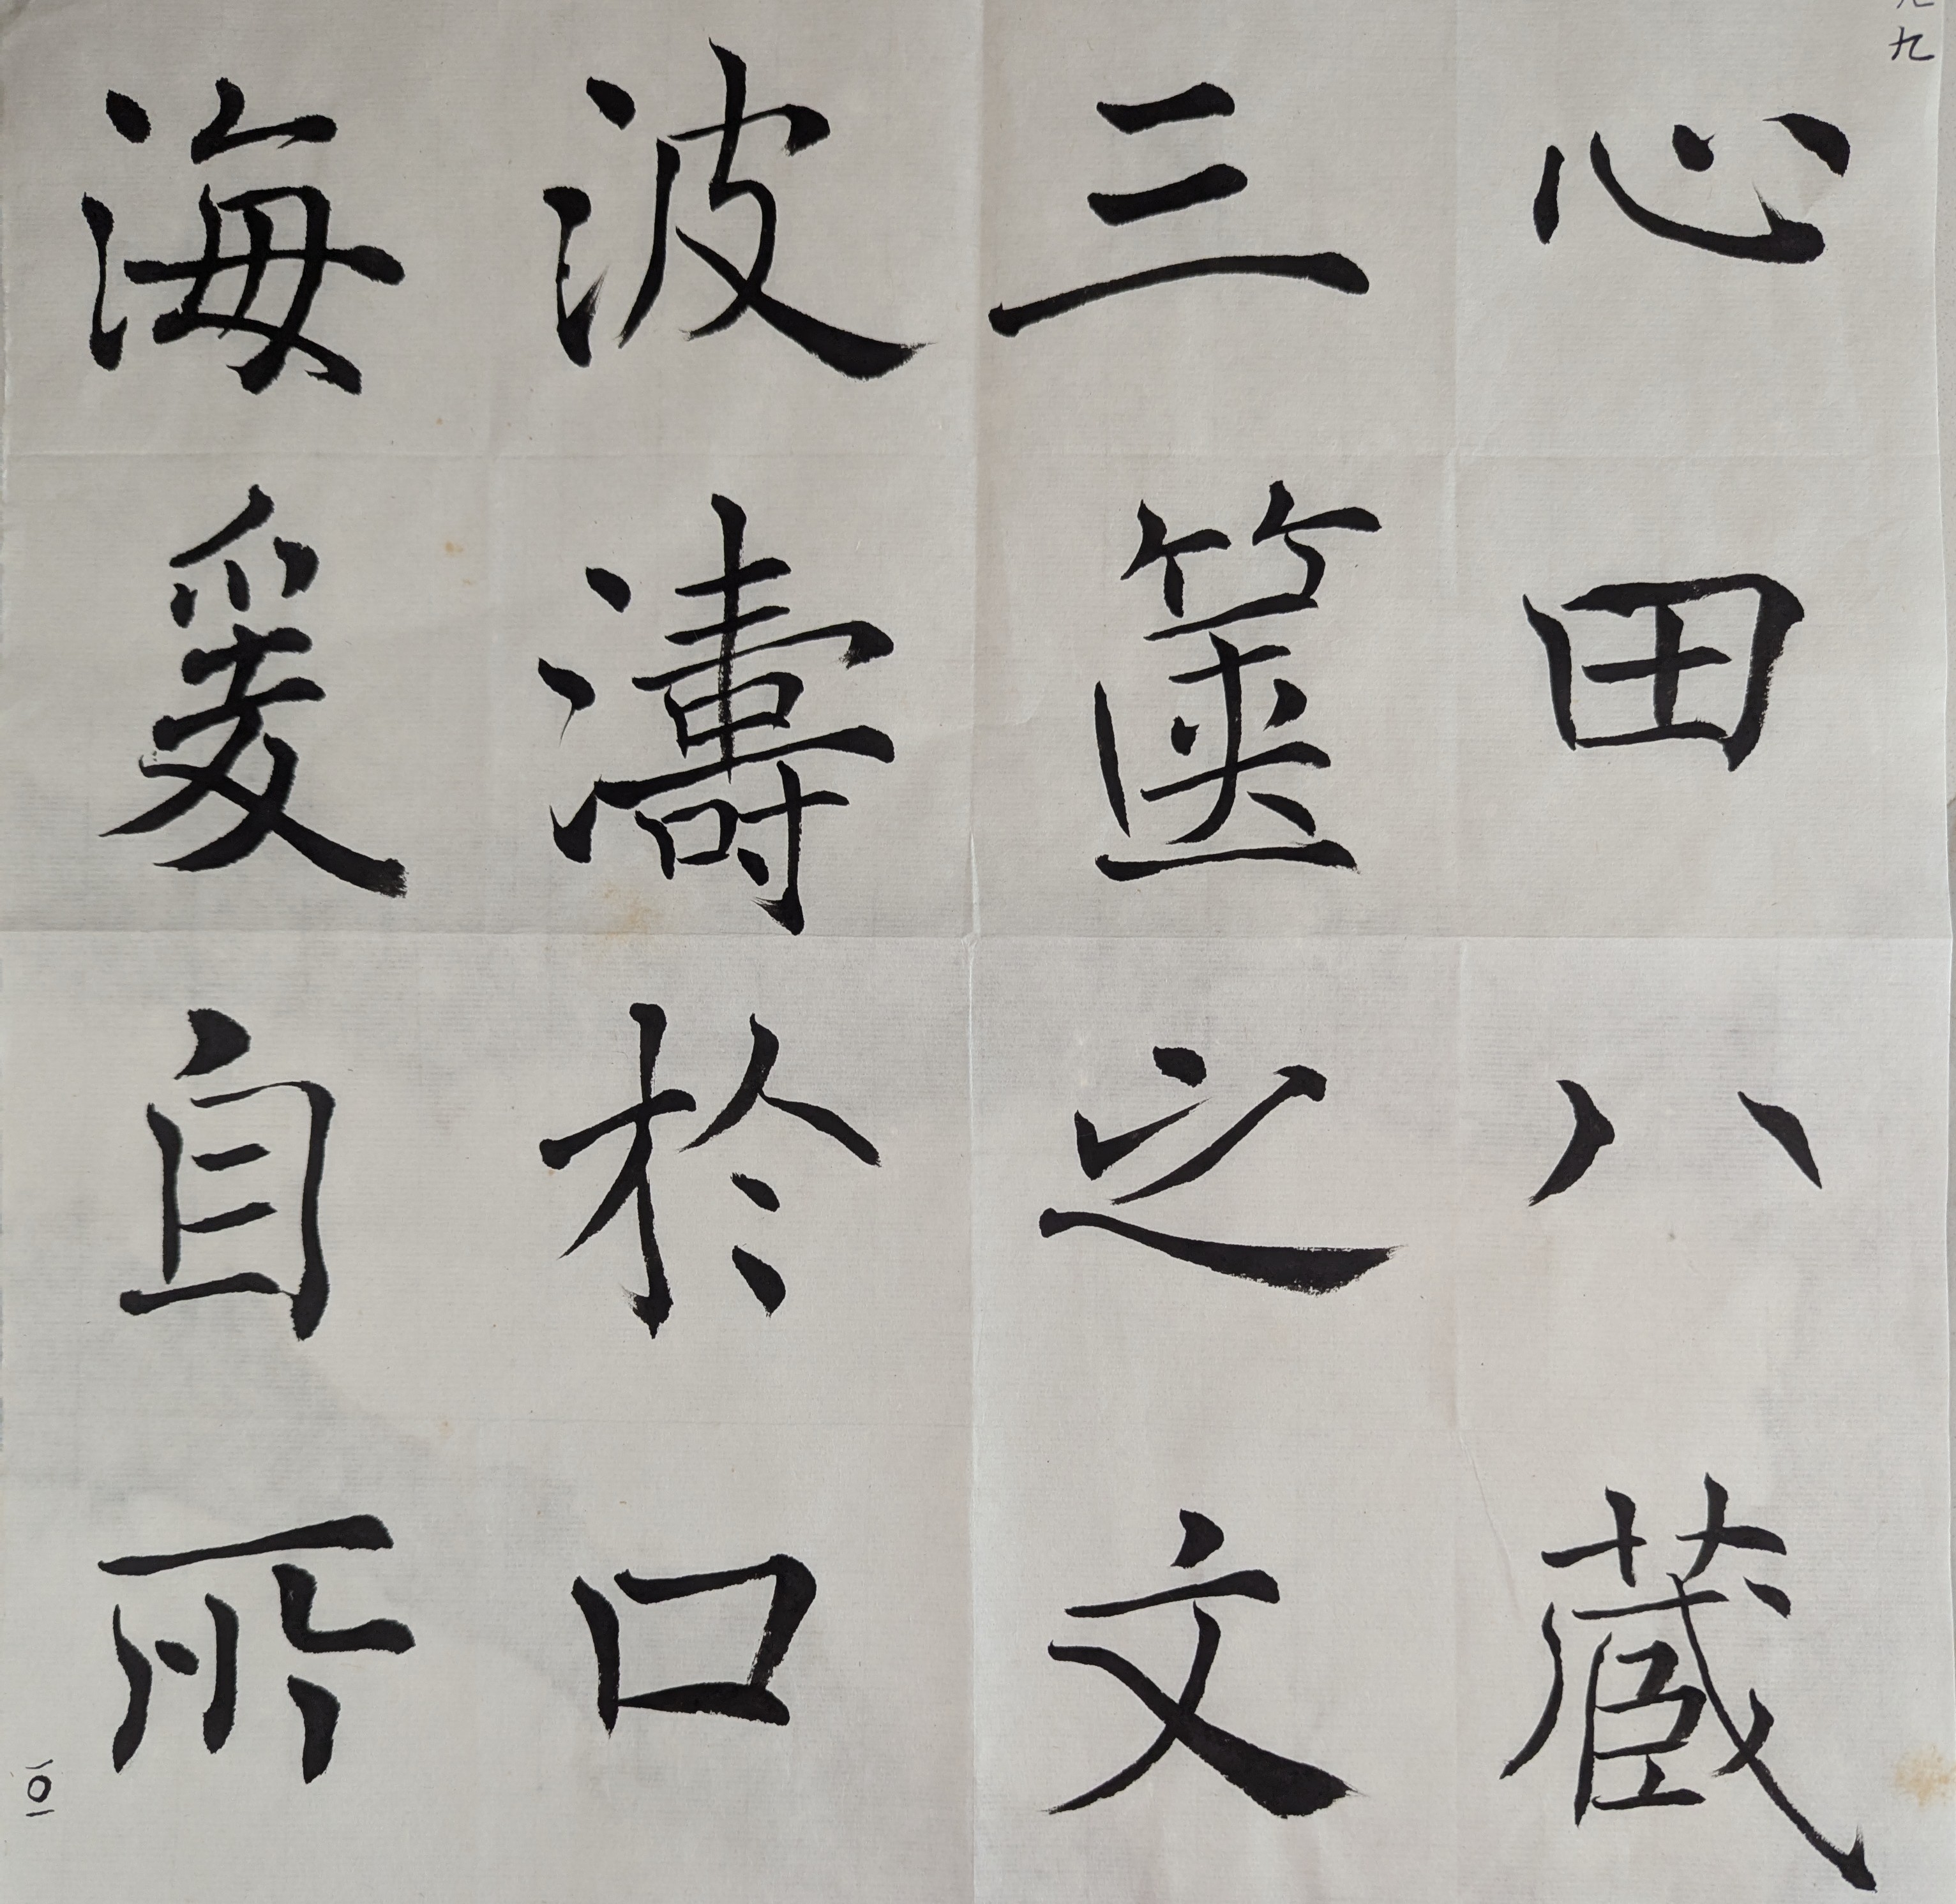 九
心田八藏
三篋之文
波濤於口
海爰自所
一〇一